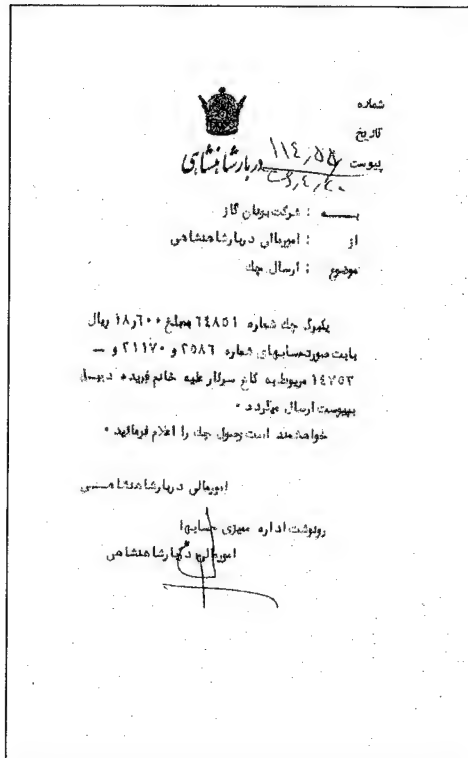 شماره
تاریخ
پیوست
۱۱٤٫۵۵
دربار شاهنشاهی
بــه : شرکت بوتان گاز
از : امورمالی دربار شاهنشاهی
موضوع : ارسال چك
یکبرگ چك شماره ٦٤٨٥١ بمبلغ ۱۸٫٦۰۰ ریال
بابت صورتحسابهای شماره ۲۵۸٦ و ۲۱۱۷۰ و ـ
۱٤۷۵۳ مربوط به کاخ سرکار علیه خانم فریده دیبا
بپیوست ارسال میگردد ۰
خواهشمند است وصول چك را اعلام فرمائید ۰
امورمالی دربار شاهنشاهــی
رونوشت اداره ممیزی حسابها
امورمالی دربار شاهنشاهی